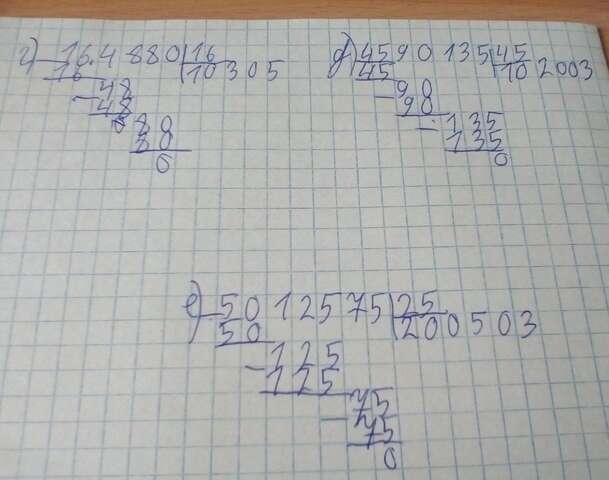 г) 164880 16
16 10305
48
48
88
88
0
д) 4590135 45
45 102003
90
90
135
135
0
е) 5012575 25
50 200503
125
125
75
75
0